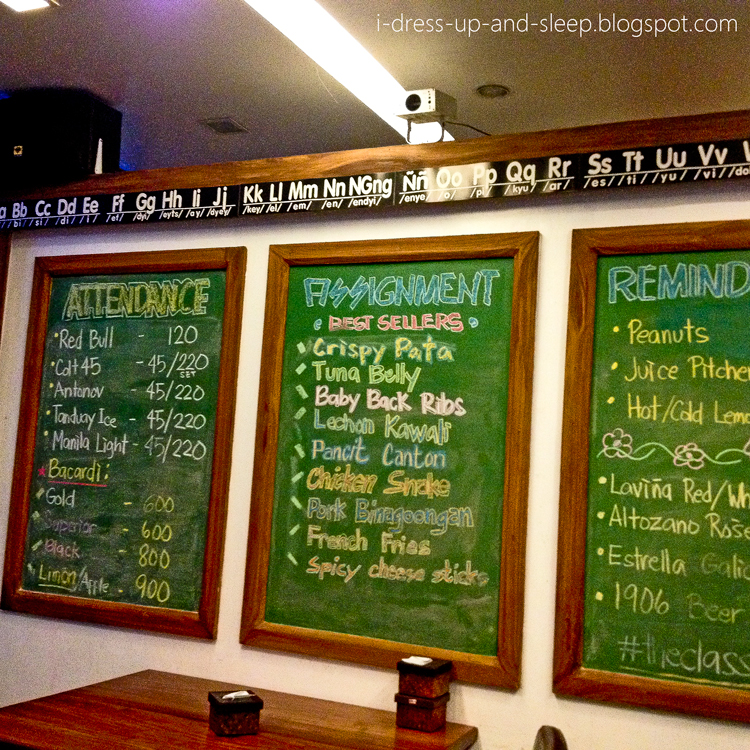 i-dress-up-and-sleep.blogspot.com
Bb Cc Dd Ee Ff Gg Hh Ii Jj Kk Ll Mm Nn NGng Ññ Oo Pp Qq Rr Ss Tt Uu Vv
/bi/ /si/ /di/ /i/ /ef/ /dyi/ /eyts/ /ay/ /dyey/ /key/ /el/ /em/ /en/ /endyi/ /enye/ /o/ /pi/ /kyu/ /ar/ /es/ /ti/ /yu/ /vi/
ATTENDANCE
Red Bull - 120
Colt 45 - 45/220
SET
Antonov - 45/220
Tanduay Ice - 45/220
Manila Light - 45/220
Bacardi:
Gold - 600
Superior - 600
Black - 800
Limon/Apple - 900
ASSIGNMENT
BEST SELLERS
Crispy Pata
Tuna Belly
Baby Back Ribs
Lechon Kawali
Pancit Canton
Chicken Snake
Pork Binagoongan
French Fries
Spicy cheese sticks
REMIND
Peanuts
Juice Pitcher
Hot/Cold Lemo
Laviña Red/Wh
Altozano Rose
Estrella Galic
1906 Beer
#theclass